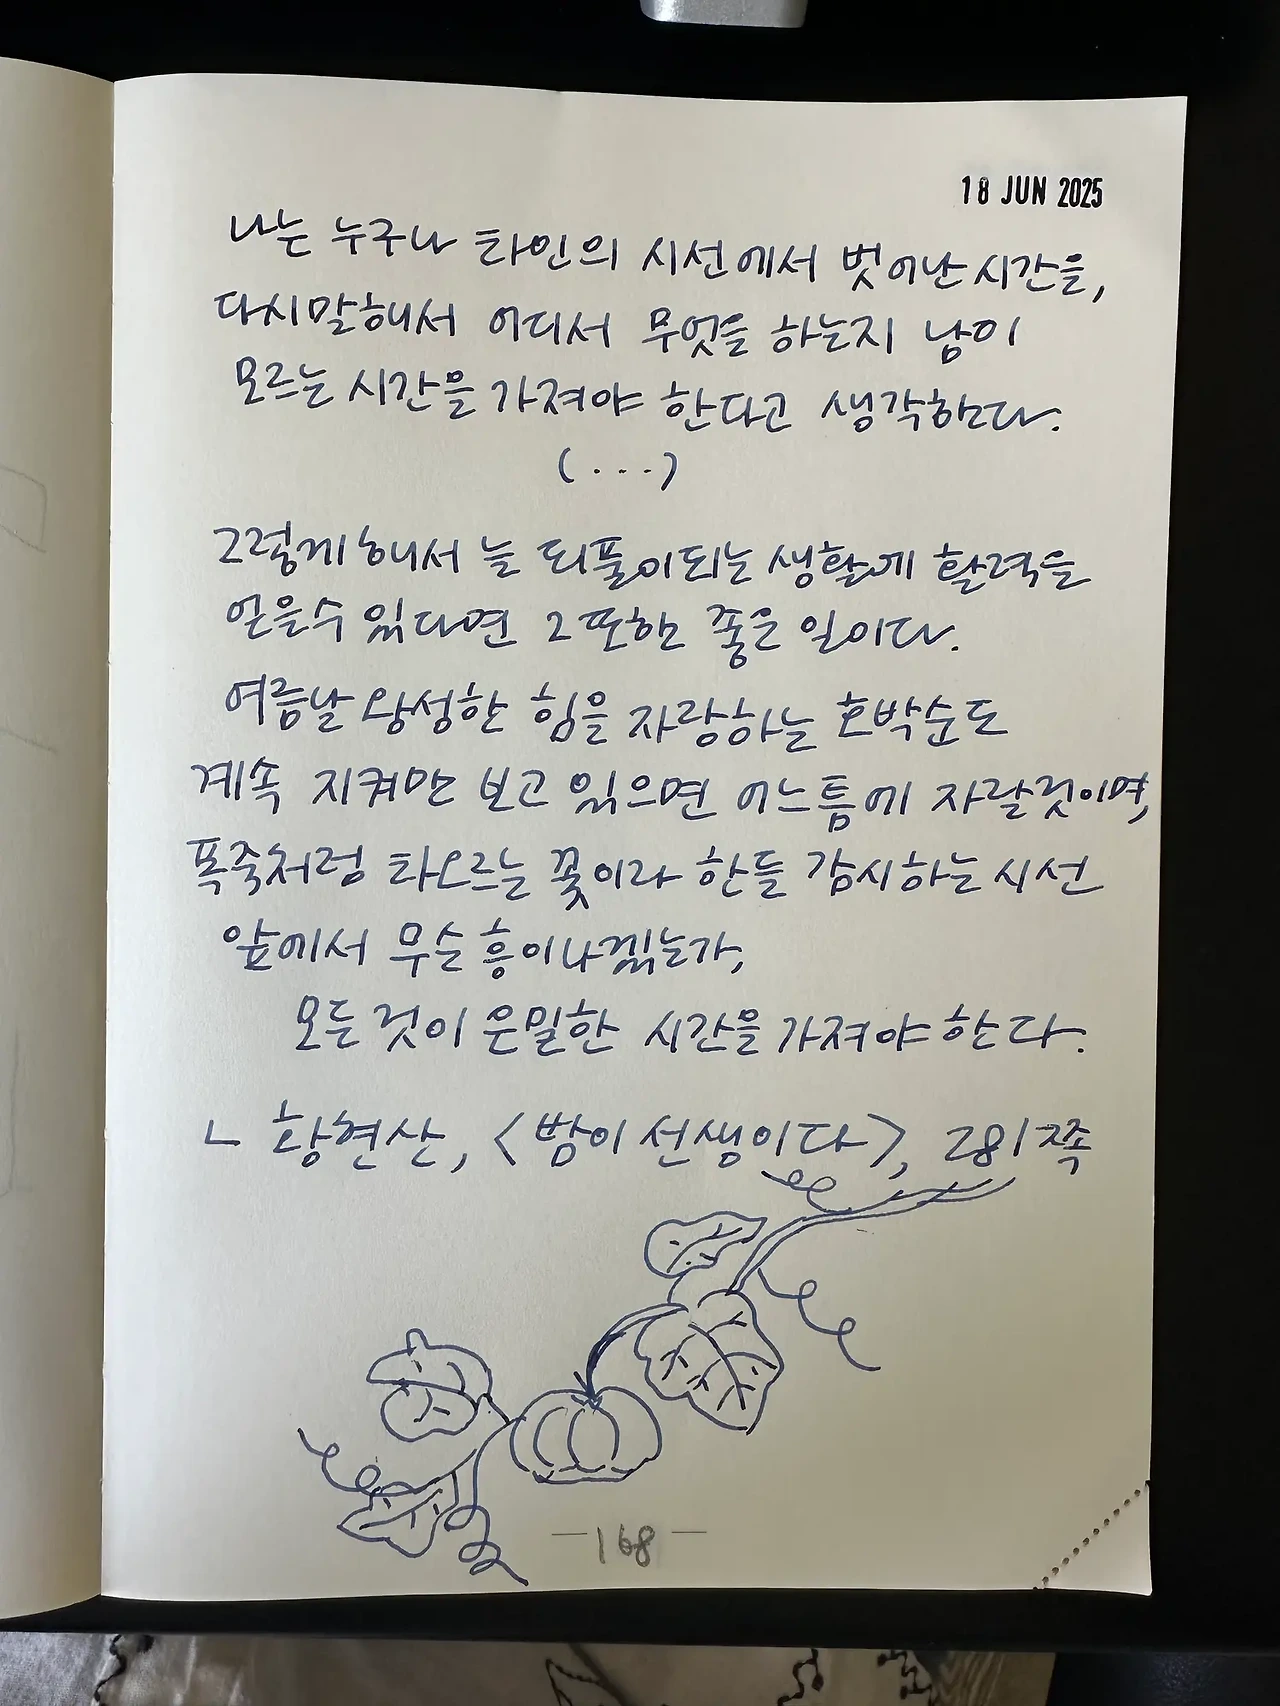 18 JUN 2025
나는 누구나 타인의 시선에서 벗어난 시간을,
다시말해서 어디서 무엇을 하는지 남이
모르는 시간을 가져야 한다고 생각한다.
(...)
그렇게해서 늘 되풀이되는 생활에 활력을
얻을수 있다면 그 또한 좋은 일이다.
여름날 왕성한 힘을 자랑하는 호박순도
계속 지켜만 보고 있으면 어느틈에 자랄것이며,
폭죽처럼 타오르는 꽃이라 한들 감시하는 시선
앞에서 무슨 흥이나겠는가,
모든 것이 은밀한 시간을 가져야 한다.
ㄴ 황현산, <밤이 선생이다>, 281쪽
- 168 -